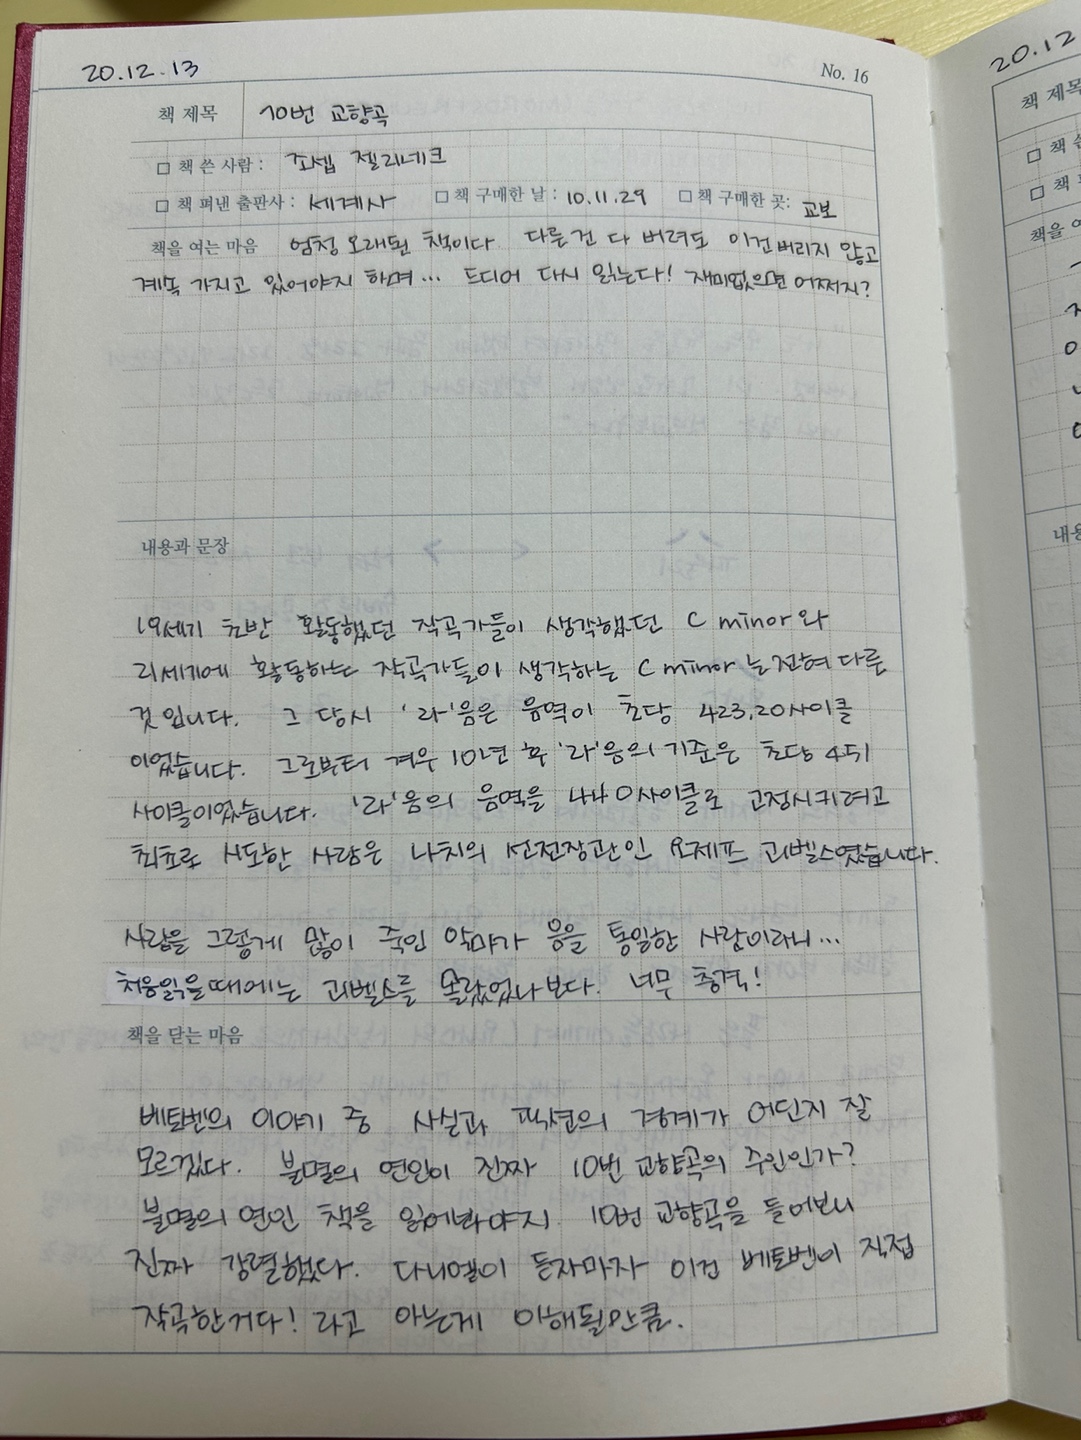 20.12.13
No. 16
책 제목 10번 교향곡
□ 책 쓴 사람 : 조셉 젤리네크
□ 책 펴낸 출판사 : 세계사 □ 책 구매한 날 : 10.11.29 □ 책 구매한 곳: 교보
책을 여는 마음 엄청 오래된 책이다. 다른건 다 버려도 이건버리지 않고
계속 가지고 있어야지 하며... 드디어 다시 읽는다! 재미없으면 어쩌지?
내용과 문장
19세기 초반 활동했던 작곡가들이 생각했던 C minor와
21세기에 활동하는 작곡가들이 생각하는 C minor는 전혀 다른
것입니다. 그 당시 '라'음은 음역이 초당 423.20사이클
이었습니다. 그로부터 겨우 10년 후 '라'음의 기준은 초당
사이클이었습니다. '라'음의 음역을 440사이클로 고정시키려고
최초로 시도한 사람은 나치의 선전장관인 요제프 괴벨스였습니다.
사람을 그렇게 많이 죽인 악마가 음을 통일한 사람이라니...
처음읽을때에는 괴벨스를 몰랐었나보다. 너무 충격!
책을 닫는 마음
베토벤의 이야기 중 사실과 픽션의 경계가 어딘지 잘
모르겠다. 불멸의 연인이 진짜 10번 교향곡의 주인인가?
불멸의 연인 책을 읽어봐야지. 10번 교향곡을 들어보니
진짜 강렬했다. 다니엘이 듣자마자 이건 베토벤이 직접
작곡한거다! 라고 아는게 이해될만큼.
20.12
책 제목
□ 책 쓴
□ 책
책을 여
내용